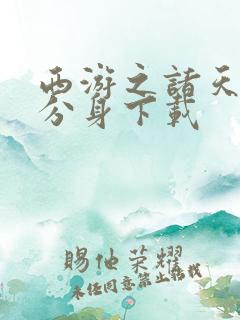 西游之諸天
分身下載
賜他荣耀
未经同意禁止转载